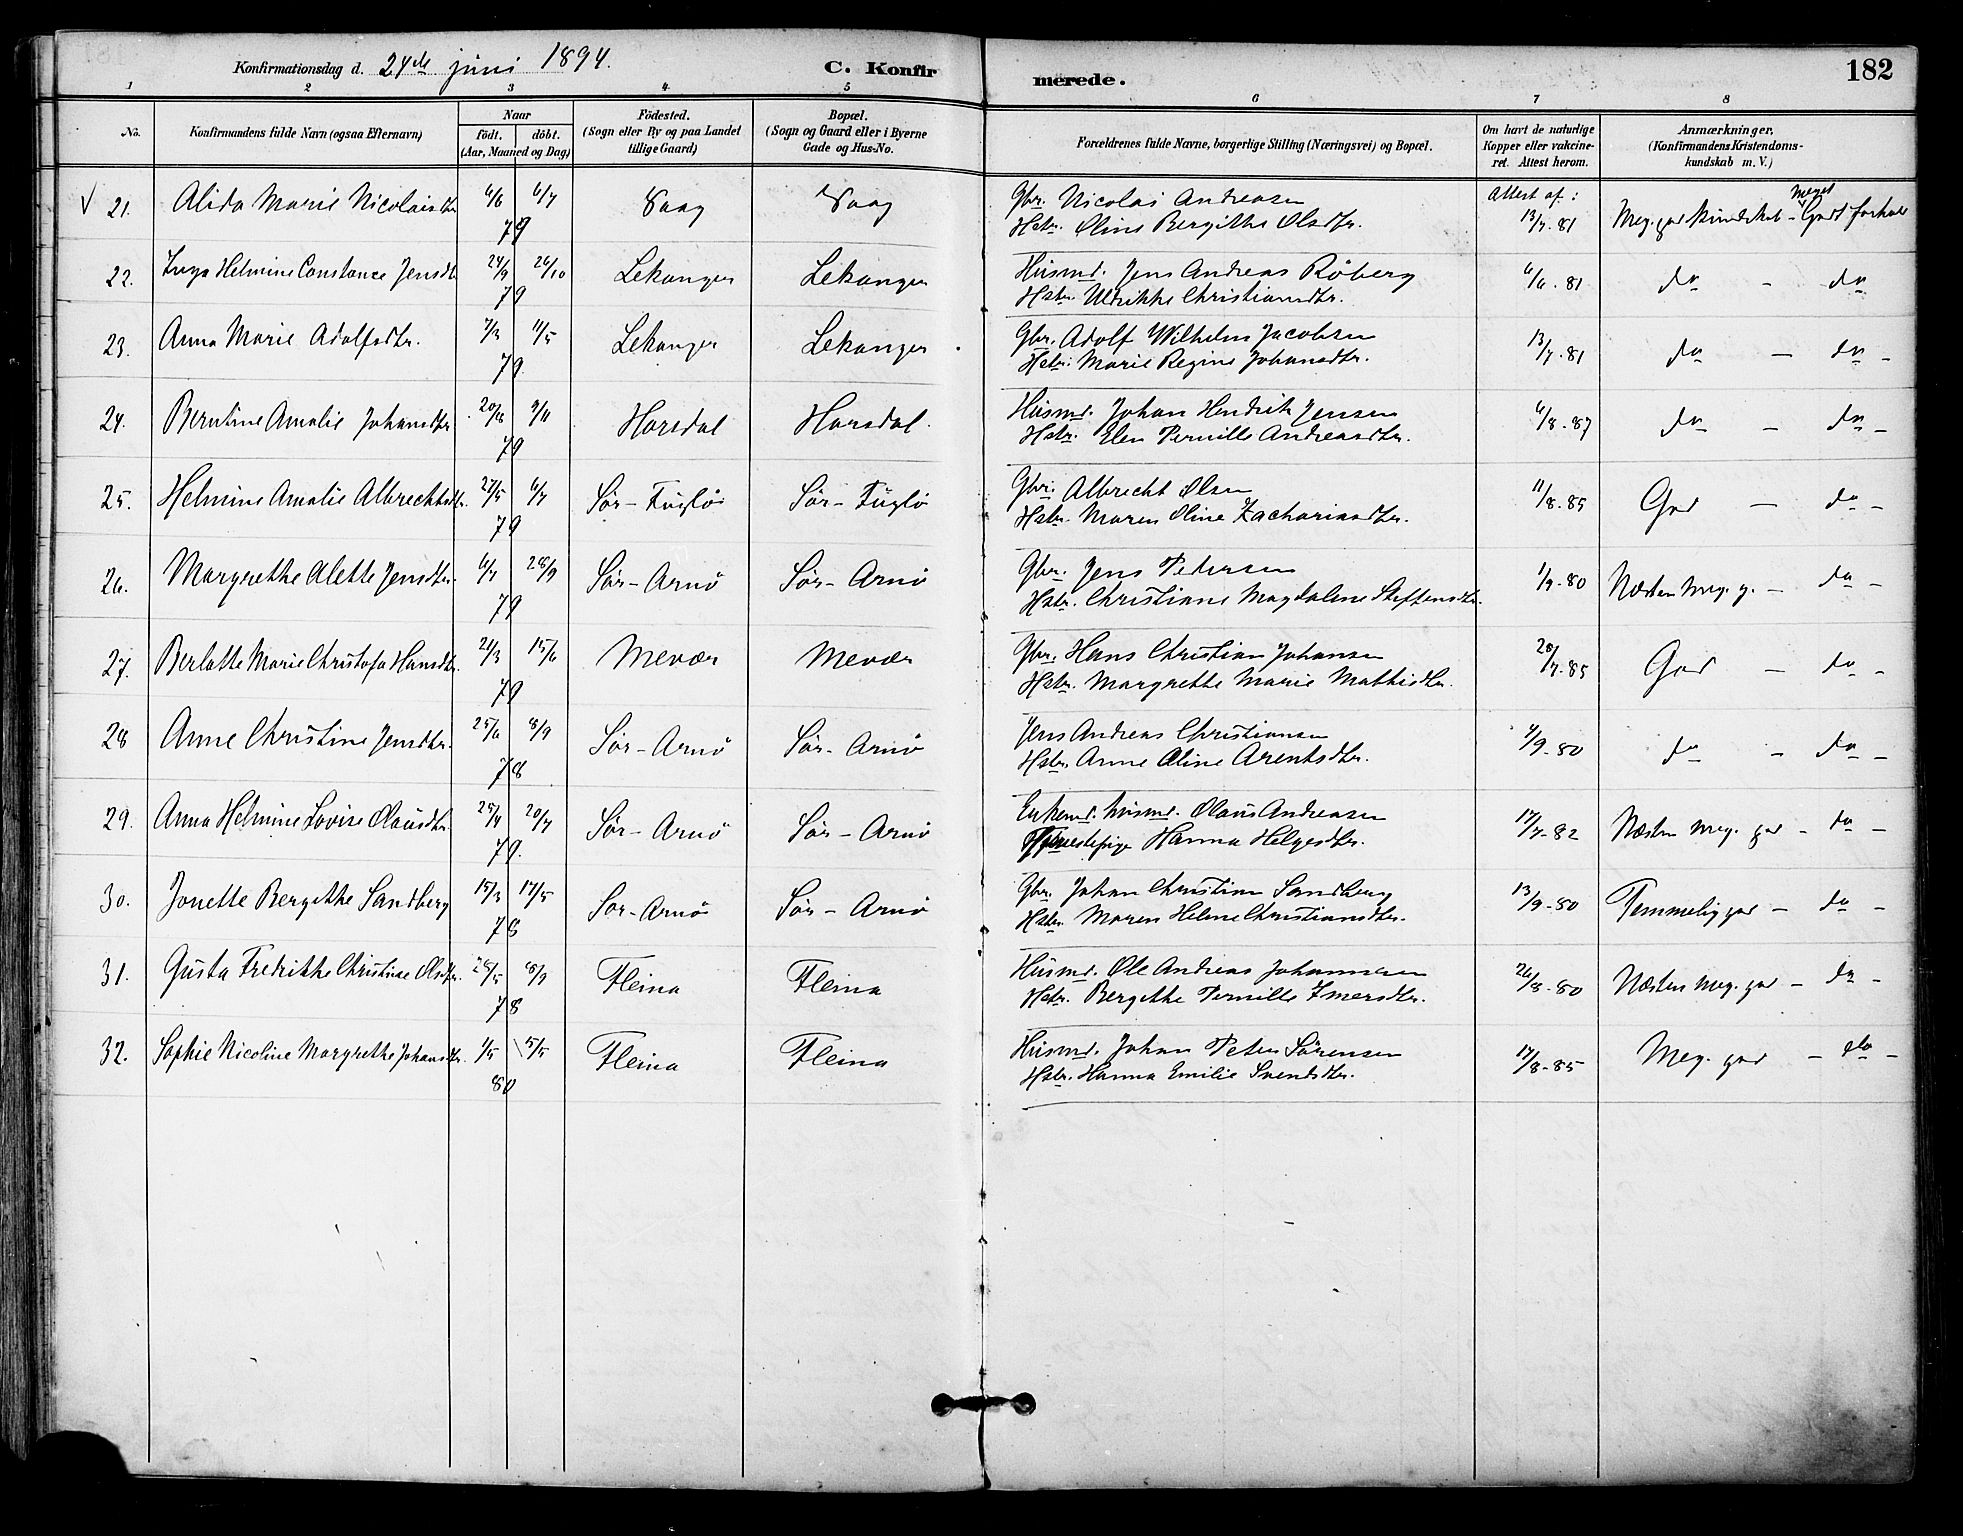 182
Konfirmationsdag d. 24de juni 1894.
C. Konfirmerede.
1 2 3 4 5 6 7 8
No. Konfirmandens fulde Navn (ogsaa Efternavn) Naar födt. döbt. (Aar, Maaned og Dag) Födested. (Sogn eller By og paa Landet tillige Gaard) Bopæl. (Sogn og Gaard eller i Byerne Gade og Hus-No. Forældrenes fulde Navne, borgerlige Stilling (Næringsvei) og Bopæl. Om havt de naturlige Kopper eller vakcineret. Attest herom. Anmærkninger, (Konfirmandens Kristendomskundskab m. V.)
Attest af:
V 21. Alida Marie Nicolaisdtr 6/7 79 Vaag Vaag Gbr. Nicolai Andreasen 13/7. 81 Meg. god kundskab - Meget Godt forhold
Hstr. Oline Bergithe Olsdtr.
22. Inga Helmine Constance Jensdtr 24/9 26/10 79 Lekanger Lekanger Husmd. Jens Andreas Röberg 6/6. 81 do - do
Hstr. Uldrikke Christiansdtr.
23. Anna Marie Adolfsdtr. 7/3 11/5 79. Lekanger Lekanger Gbr. Adolf Wilhelm Jacobsen 13/7. 81 do - do -
Hstr. Marie Regine Johansdtr.
24. Berntine Amalie Johansdtr 9/11 79 Horsdal Horsdal. Husmd. Johan Hendrik Jensen 6/8. 87 do - do -
Hstr. Elen Pernille Andreasdtr.
25. Helmine Amalie Albrechtsdtr. 27/5 6/7 79 Sör-Fuglö Sör-Fuglö Gbr. Albrecht Olsen 11/8. 85 God - do -
Hstr. Maren Oline Zachariasdtr.
26. Margrethe Alette Jensdtr. 6/7 28/9 79 Sör-Arnö Sör-Arnö Gbr. Jens Petersen 1/9. 80 Næsten meg. g. - do -
Hstr. Christiane Magdalene Steffensdtr.
27. Berlotte Marie Christofa Hansdtr. 15/6 79 Mevær Mevær Gbr. Hans Christian Johansen 28/7. 85 God - do -
Hstr. Margrethe Marie Mathisdtr.
28 Anne Christine Jensdtr. 25/6 8/9 78 Sör-Arnö Sör-Arnö Jens Andreas Christiansen 4/9. 80 do - do -
Hstr. Anne Oline Arentsdtr.
29. Anna Helmine Lovise Olausdtr. 20/7 79. Sör-Arnö Sör-Arnö Enkemd. husmd. Olaus Andreasen 17/7. 82 Næsten meg. god - do -
Tjenestepige Hanna Helgesdtr.
30. Jonette Bergithe Sandberg 15/3 17/5 78 Sör-Arnö Sör-Arnö Gbr. Johan Christian Sandberg 13/9. 80 Temmelig god - do -
Hstr. Maren Helene Christiansdtr.
31. Gusta Fredrikke Christine Olsdtr. 28/5 8/9 78 Fleina Fleina Husmd. Ole Andreas Johannesen 26/8. 80 Næsten meg. god - do -
Hstr. Bergithe Pernille Zmersdtr.
32. Sophie Nicoline Margrethe Johansdtr. 1/5 5/5 80 Fleina Fleina Husmd. Johan Peter Sörensen 17/8. 85 Meg. god - do -
Hstr. Hanna Emilie Svendsdtr.